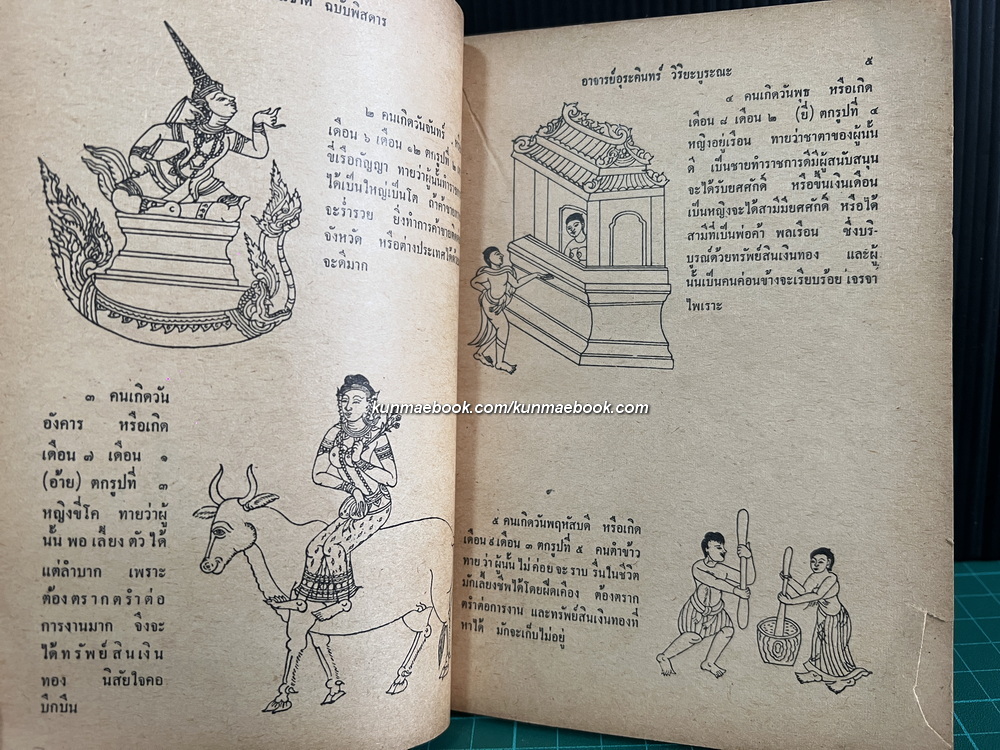 ฉบับพิสดาร
๒ คนเกิดวันจันทร์
เดือน ๖ เดือน ๑๒ ตกรูปที่ ๒
ขี่เรือกัญญา ทายว่าผู้นั้นทำรา
ได้เป็นใหญ่เป็นโต ถ้าค้าขาย
จะร่ำรวย ยิ่งทำการค้าขาย
จังหวัด หรือต่างประเทศได้ด้วย
จะดีมาก
๓ คนเกิดวัน
อังคาร หรือเกิด
เดือน ๗ เดือน ๑
(อ้าย) ตกรูปที่ ๓
หญิงขี่โค ทายว่าผู้
นั้น พอ เลี้ยง ตัว ได้
แต่ลำบาก เพราะ
ต้อง ตราก ตรำ ต่อ
การงานมาก จึงจะ
ได้ ทรัพย์ สิน เงิน
ทอง นิสัยใจคอ
บึกบึน
อาจารย์อุระคินทร์ วิริยะบูรณะ
๕
๔ คนเกิดวันพุธ หรือเกิด
เดือน ๘ เดือน ๒ (ยี่) ตกรูปที่ ๔
หญิงอยู่เรือน ทายว่าชาตาของผู้นั้น
ดี เป็นชายทำราชการดีมีผู้สนับสนุน
จะได้รับยศศักดิ์ หรือขึ้นเงินเดือน
เป็นหญิงจะได้สามีมียศศักดิ์ หรือได้
สามีที่เป็นพ่อค้า พลเรือน ซึ่งบริ-
บูรณ์ด้วยทรัพย์สินเงินทอง และผู้
นั้นเป็นคนค่อนข้างจะเรียบร้อย เจรจา
ไพเราะ
kunmaebook.com/kunmaebook.com
๕ คนเกิดวันพฤหัสบดี หรือเกิด
เดือน ๙ เดือน ๓ ตกรูปที่ ๕ คนตำข้าว
ทาย ว่า ผู้นั้น ไม่ ค่อย จะ ราบ รื่นในชีวิต
มักเลี้ยงชีพได้โดยฝืดเคือง ต้องตราก
ตรำต่อการงาน และทรัพย์สินเงินทองที่
หาได้ มักจะเก็บไม่อยู่